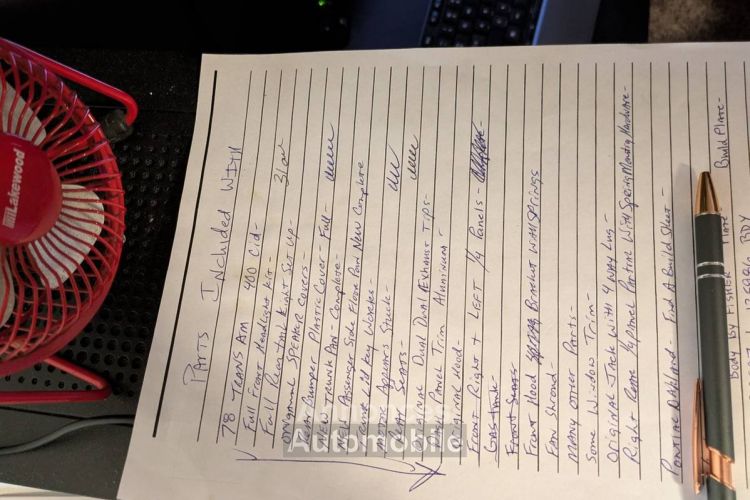 PARTS INCLUDED WITH
78 TRANS AM 400 Cid-
Full Front Headlight Kit-
Full Tail Light Set Up-
ORIGINAL SPEAKER COVERS-
BUMPER PLASTIC COVER - Full-
NEW TRUNK PAN - Complete-
NEW PASSENGER Side Floor Pan NEW Complete
Key WORKS-
MOTOR APPEARS STUCK-
SEATS-
ORIGINAL DUAL DUAL EXHAUST TIPS-
PANEL TRIM ALUMINUM-
ORIGINAL HOOD-
FRONT Right + LEFT 1/4 PANELS-
GAS TANK-
FRONT SEATS
FRONT HOOD BRACKET WITH SPRINGS
FAN Shroud-
MANY OTHER Parts-
Some Window Trim-
ORIGINAL JACK WITH 4 WAY Lug-
Right REAR 1/4 PANEL PARTIAL WITH SPRING Mounting Hardware-
PONTIAC OAKLAND - FIND A Build Sheet-
Body by FISHER PLATE Build PLATE-
BDY
Lakewood
Automobile